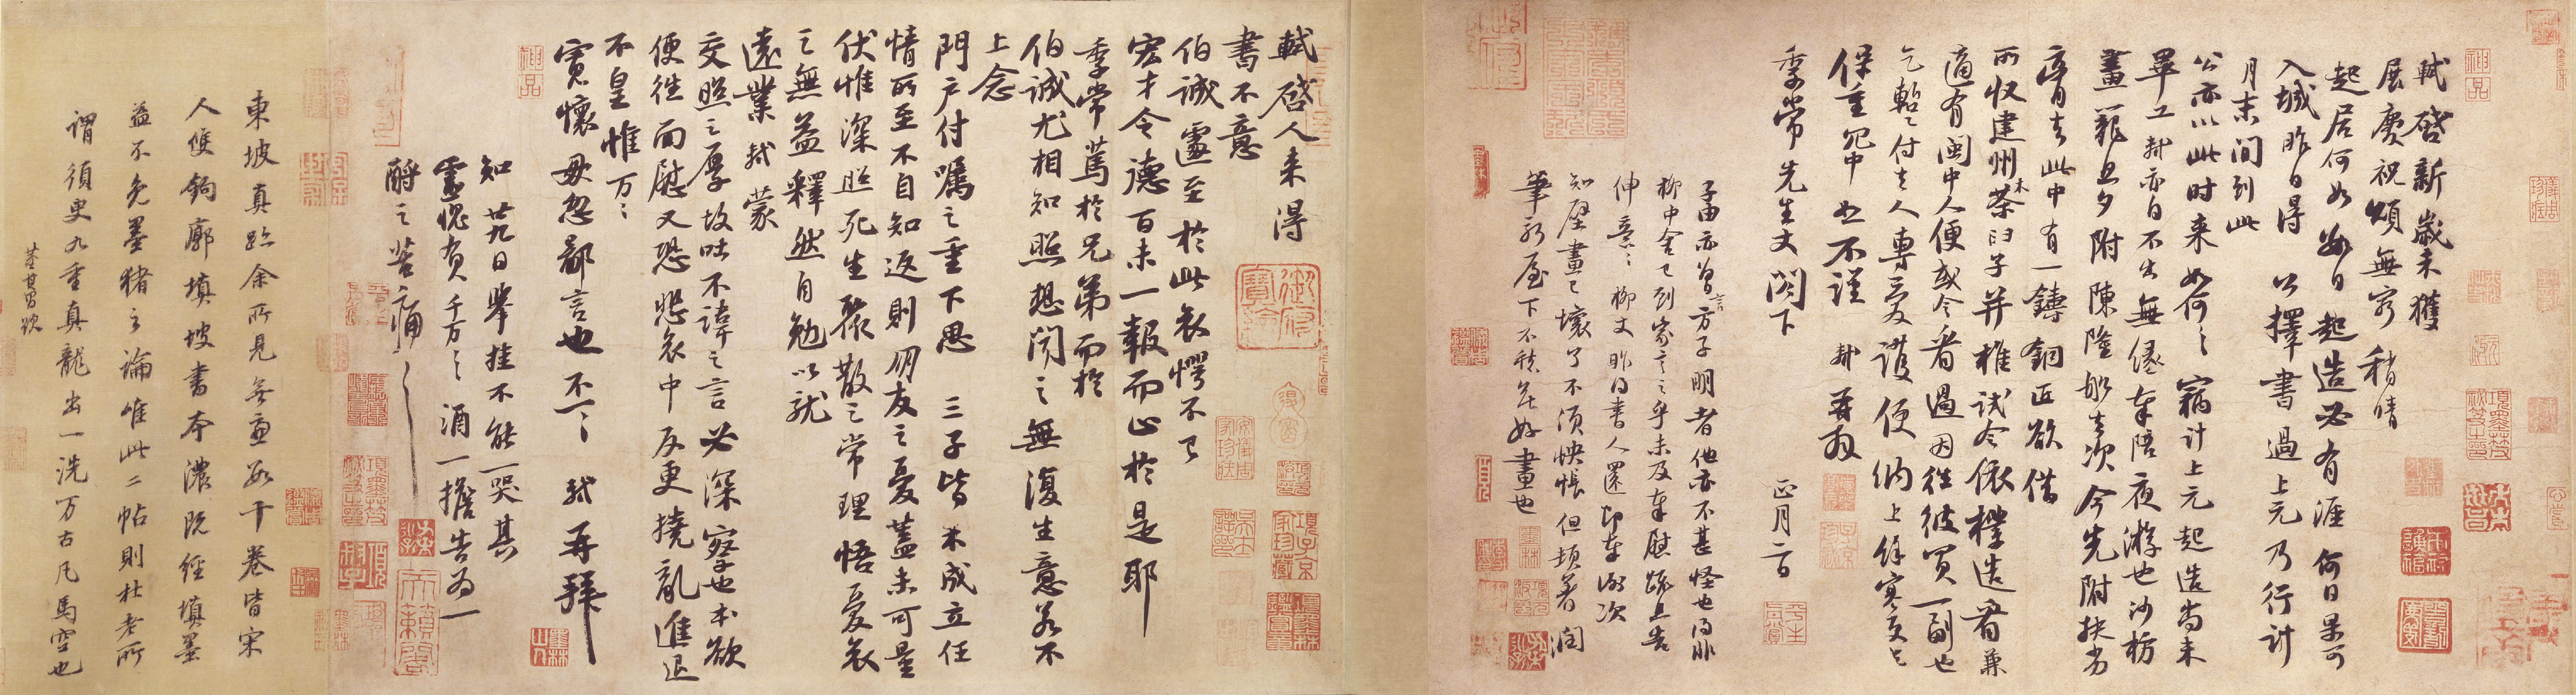 軾啓新歲未獲
展慶祝頌無窮稍晴
起居何如數日起造必有涯何日果可
入城昨日得公擇書過上元乃行計
月末間到此
公亦以此时来如何〻竊計上元起造尚未
畢工軾亦自不出無緣奉陪夜游也沙枋
畫籠旦夕附陳隆船去次今先附扶劣
膏去此中有一鑄銅匠欲借
所收建州木茶臼子并椎試令依樣造看兼
適有閩中人便或令看過因往彼買一副也
乞暫付去人專愛護便納上餘寒更乞
保重冗中恕不謹 軾再拜
季常先生丈閣下 正月二日
子由亦曾言方子明者他亦不甚怪也得非
柳中舍已到家言之乎未及奉慰疏且告
伸意〻柳丈昨得書人還即奉謝次
知壁畫已壞了不須怏悵但頓著潤
筆新屋下不愁無好畫也
軾啓人来得
書不意
伯誠遽至於此哀愕不已
宏才令德百未一報而止於是耶
季常篤於兄弟而於
伯誠尤相知照想聞之無復生意若不
上念
門戶付囑之重下思三子皆未成立任
情所至不自知返則朋友之憂蓋未可量
伏惟深照死生聚散之常理悟憂哀
之無益釋然自勉以就
遠業軾蒙
交照之厚故吐不諱之言必深察也本欲
便往面慰又恐悲哀中反更撓亂進退
不皇惟万〻
寬懷毋忽鄙言也不一〻 軾再拜
知廿九日舉掛不能一哭其
靈愧負千万〻酒一擔告為一
酹之苦痛〻
東坡真跡余所見無慮數十卷皆宋
人雙鉤廓填坡書本濃既經填墨
益不免墨豬之論唯此二帖則杜老所
謂須臾九重真龍出一洗万古凡馬空也
董其昌